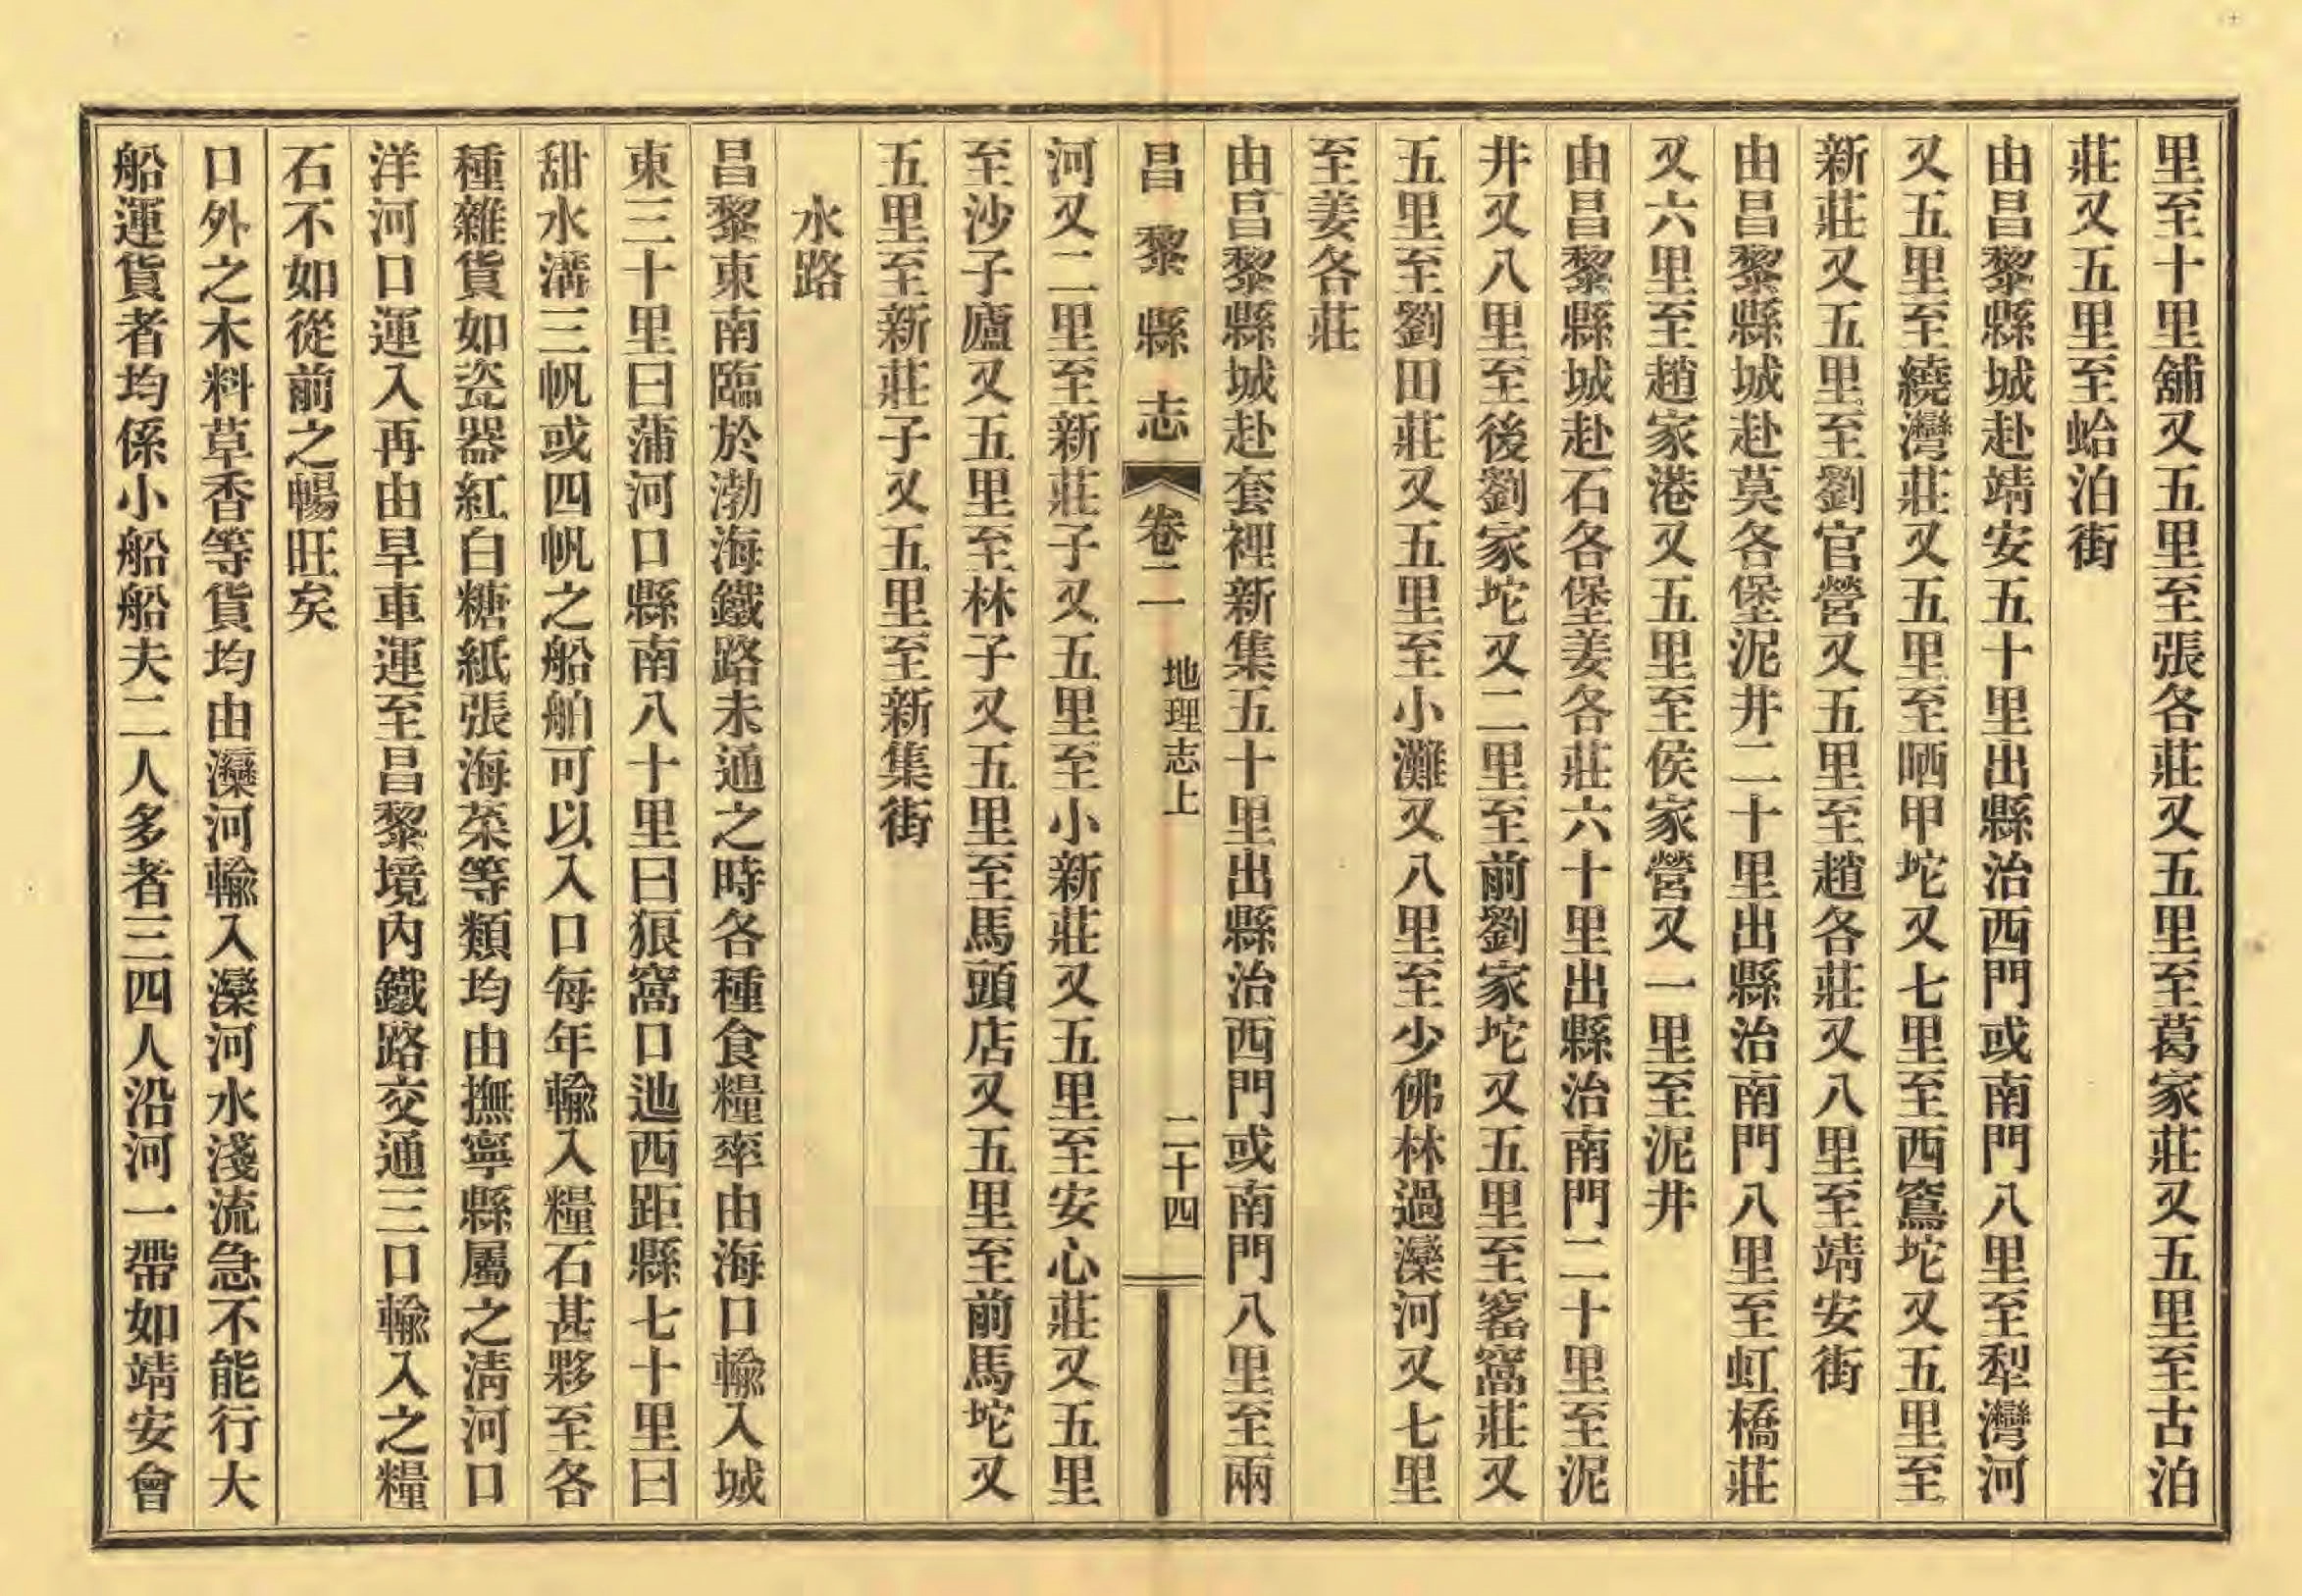 里至十里舖又五里至張各莊又五里至葛家莊又五里至古泊
莊又五里至蛤泊街
由昌黎縣城赴靖安五十里出縣治西門或南門八里至犁灣河
又五里至繞灣莊又五里至晒甲坨又七里至西窵坨又五里至
新莊又五里至劉官營又五里至趙各莊又八里至靖安街
由昌黎縣城赴莫各堡泥井二十里出縣治南門八里至虹橋莊
又六里至趙家港又五里至侯家營又一里至泥井
由昌黎縣城赴石各堡姜各莊六十里出縣治南門二十里至泥
井又八里至後劉家坨又二里至前劉家坨又五里至窰窩莊又
五里至劉田莊又五里至小灘又八里至少佛林過灤河又七里
至姜各莊
由昌黎縣城赴套裡新集五十里出縣治西門或南門八里至兩
昌黎縣志 卷二 地理志上 二十四
河又二里至新莊子又五里至小新莊又五里至安心莊又五里
至沙子廬又五里至林子又五里至馬頭店又五里至前馬坨又
五里至新莊子又五里至新集街
水路
昌黎東南臨於渤海鐵路未通之時各種食糧率由海口輸入城
東三十里曰蒲河口縣南八十里曰狼窩口迆西距縣七十里曰
甜水溝三帆或四帆之船舶可以入口每年輸入糧石甚夥至各
種雜貨如瓷器紅白糖紙張海菜等類均由撫寧縣屬之淸河口
洋河口運入再由旱車運至昌黎境內鐵路交通三口輸入之糧
石不如從前之暢旺矣
口外之木料草香等貨均由灤河輸入灤河水淺流急不能行大
船運貨者均係小船船夫二人多者三四人沿河一帶如靖安會